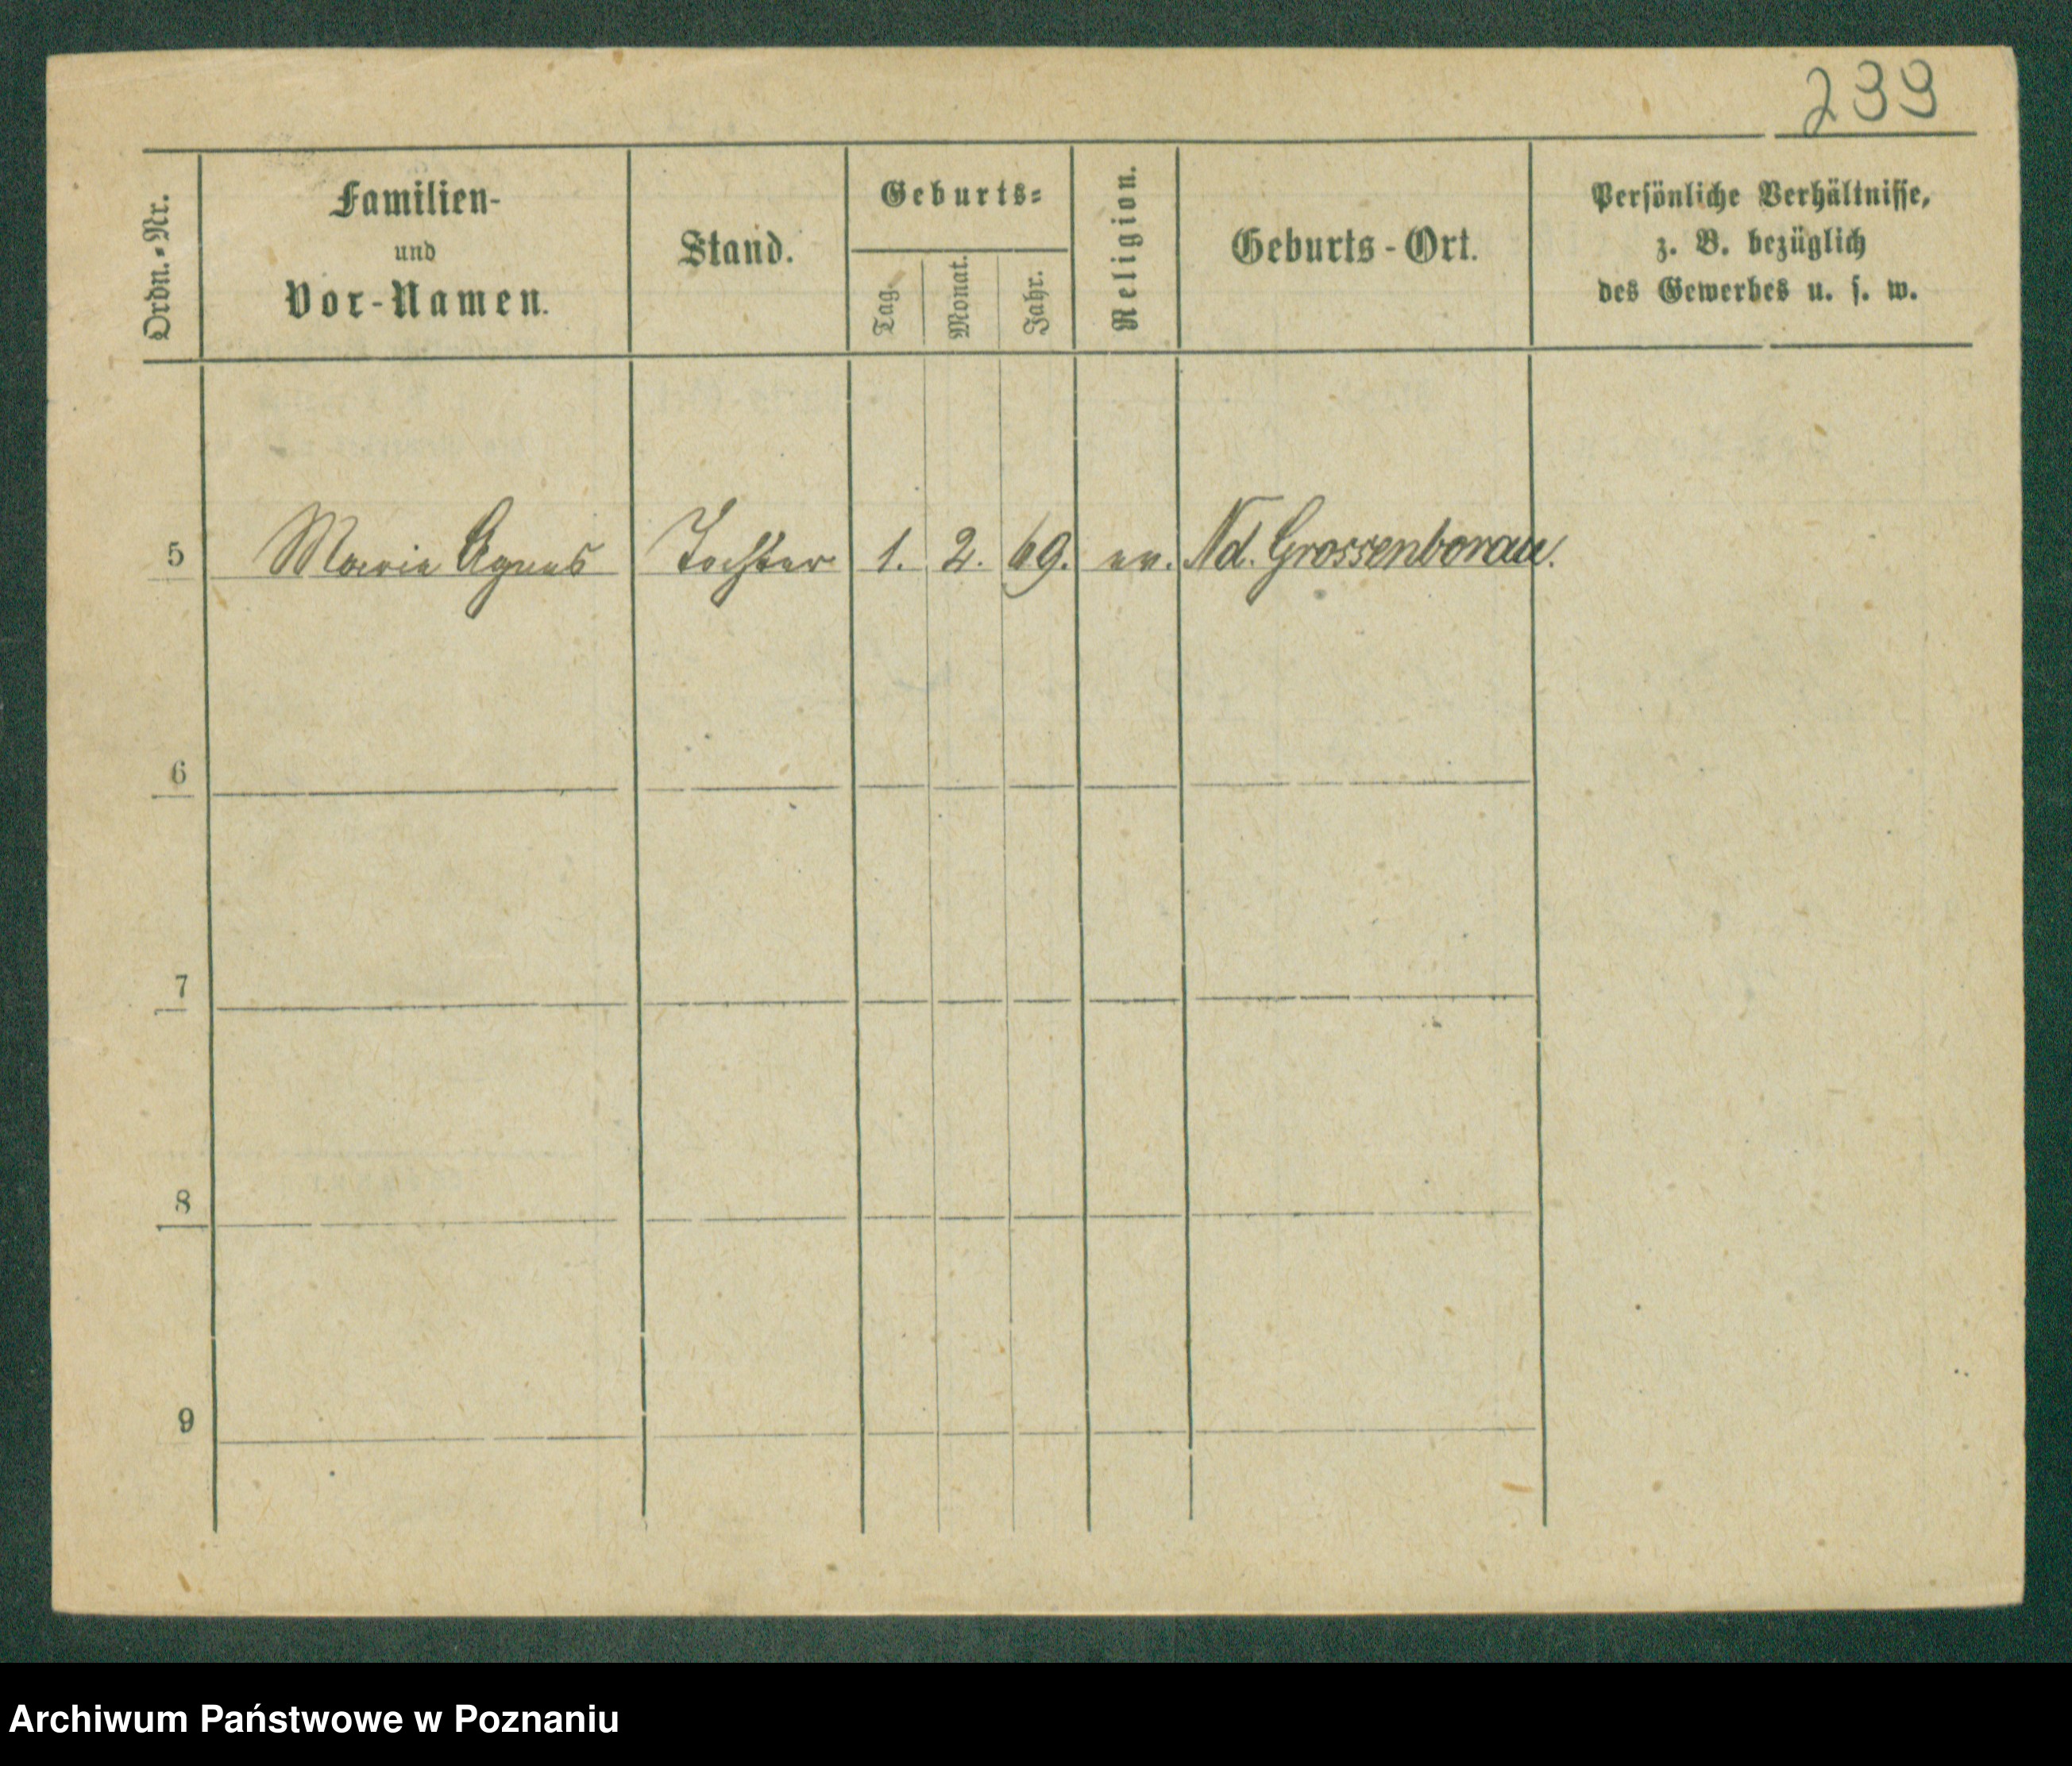 239
Ordn.-Nr.
Familien-
und
Vor-Namen.
Stand.
Geburts-
Tag.
Monat.
Jahr.
Religion.
Geburts-Ort.
Persönliche Verhältnisse,
z. B. bezüglich
des Gewerbes u. s. w.
5 Marie Agnes Tochter 1. 2. 69. ev. Nd. Grossenborau.
6
7
8
9
Archiwum Państwowe w Poznaniu